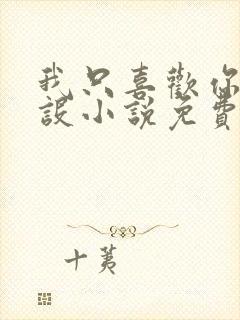 我只喜歡你
設小說免費
十荑